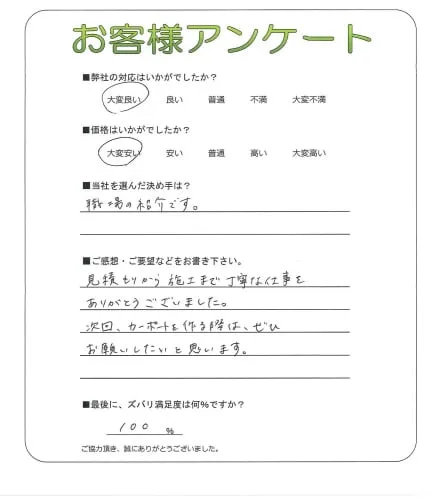 お客様アンケート
■弊社の対応はいかがでしたか？
大変良い 良い 普通 不満 大変不満
■価格はいかがでしたか？
大変安い 安い 普通 高い 大変高い
■当社を選んだ決め手は？
職場の紹介です。
■ご感想・ご要望などをお書き下さい。
見積もりから施工まで丁寧な仕事を
ありがとうございました。
次回、カーポートを作る際は、ぜひ
お願いしたいと思います。
■最後に、ズバリ満足度は何％ですか？
100 ％
ご協力頂き、誠にありがとうございました。